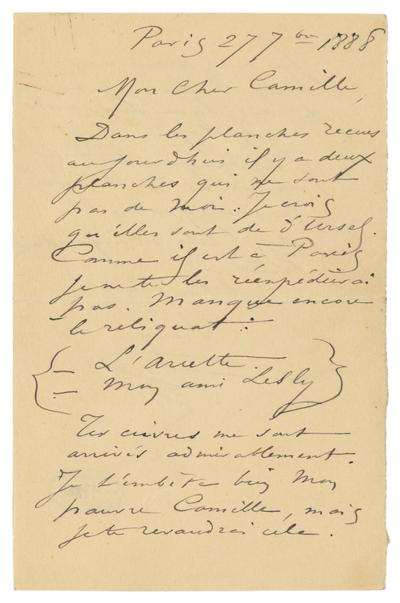 Paris 27 7bre 1888
Mon Cher Camille,
Dans les planches recues
aujourdhui il y a deux
planches qui ne sont
pas de moi. Je crois
qu'elles sont de d'Ursel.
Comme il est à Paris
je ne te les réexpédierai
pas. Manque encore
le reliquat :
L'ariette.
Mon ami Lesly
Tes cuivres me sont
arrivés admirablement.
Je t'embête bien Mon
pauvre Camille, mais
je te revaudrai cela.